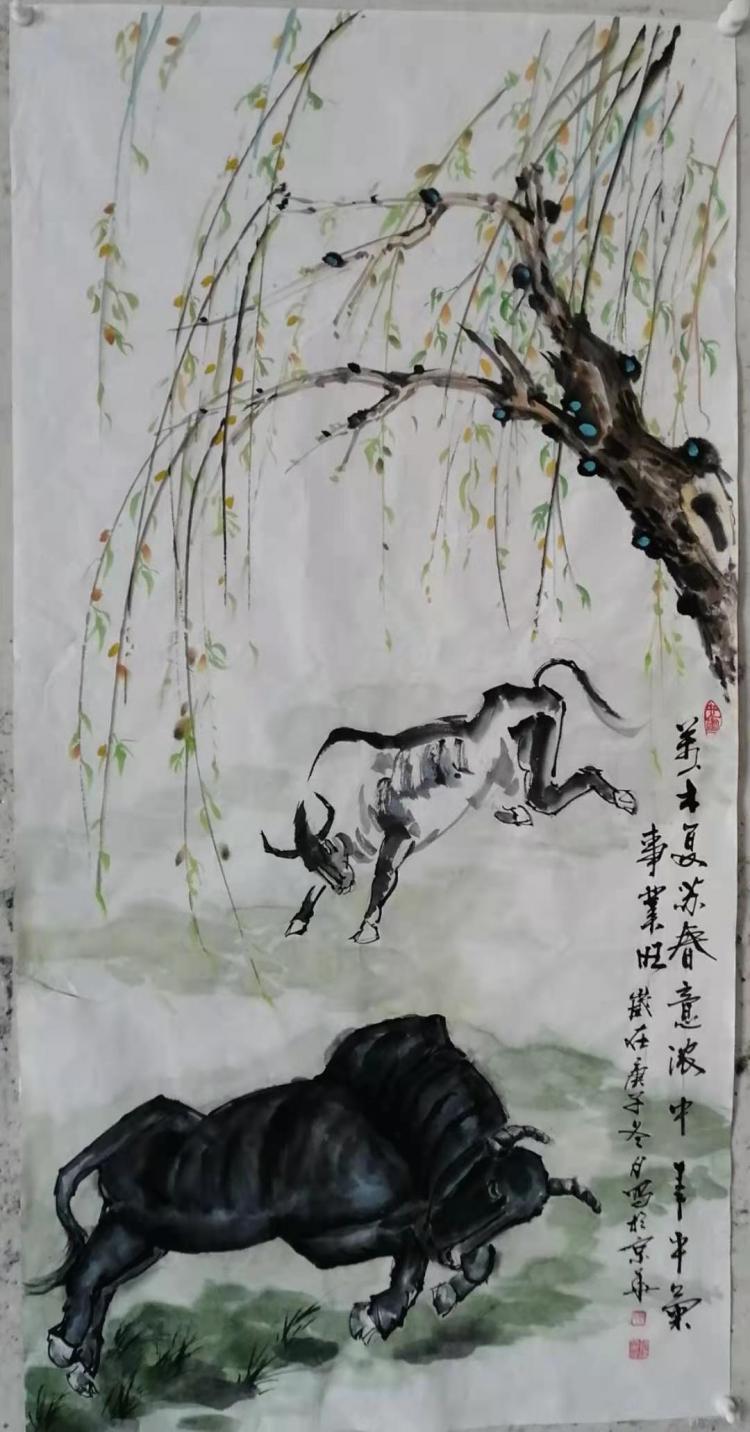 萬木复苏春意浓牛年牛氣
事業旺 歲在庚子冬月写於京華